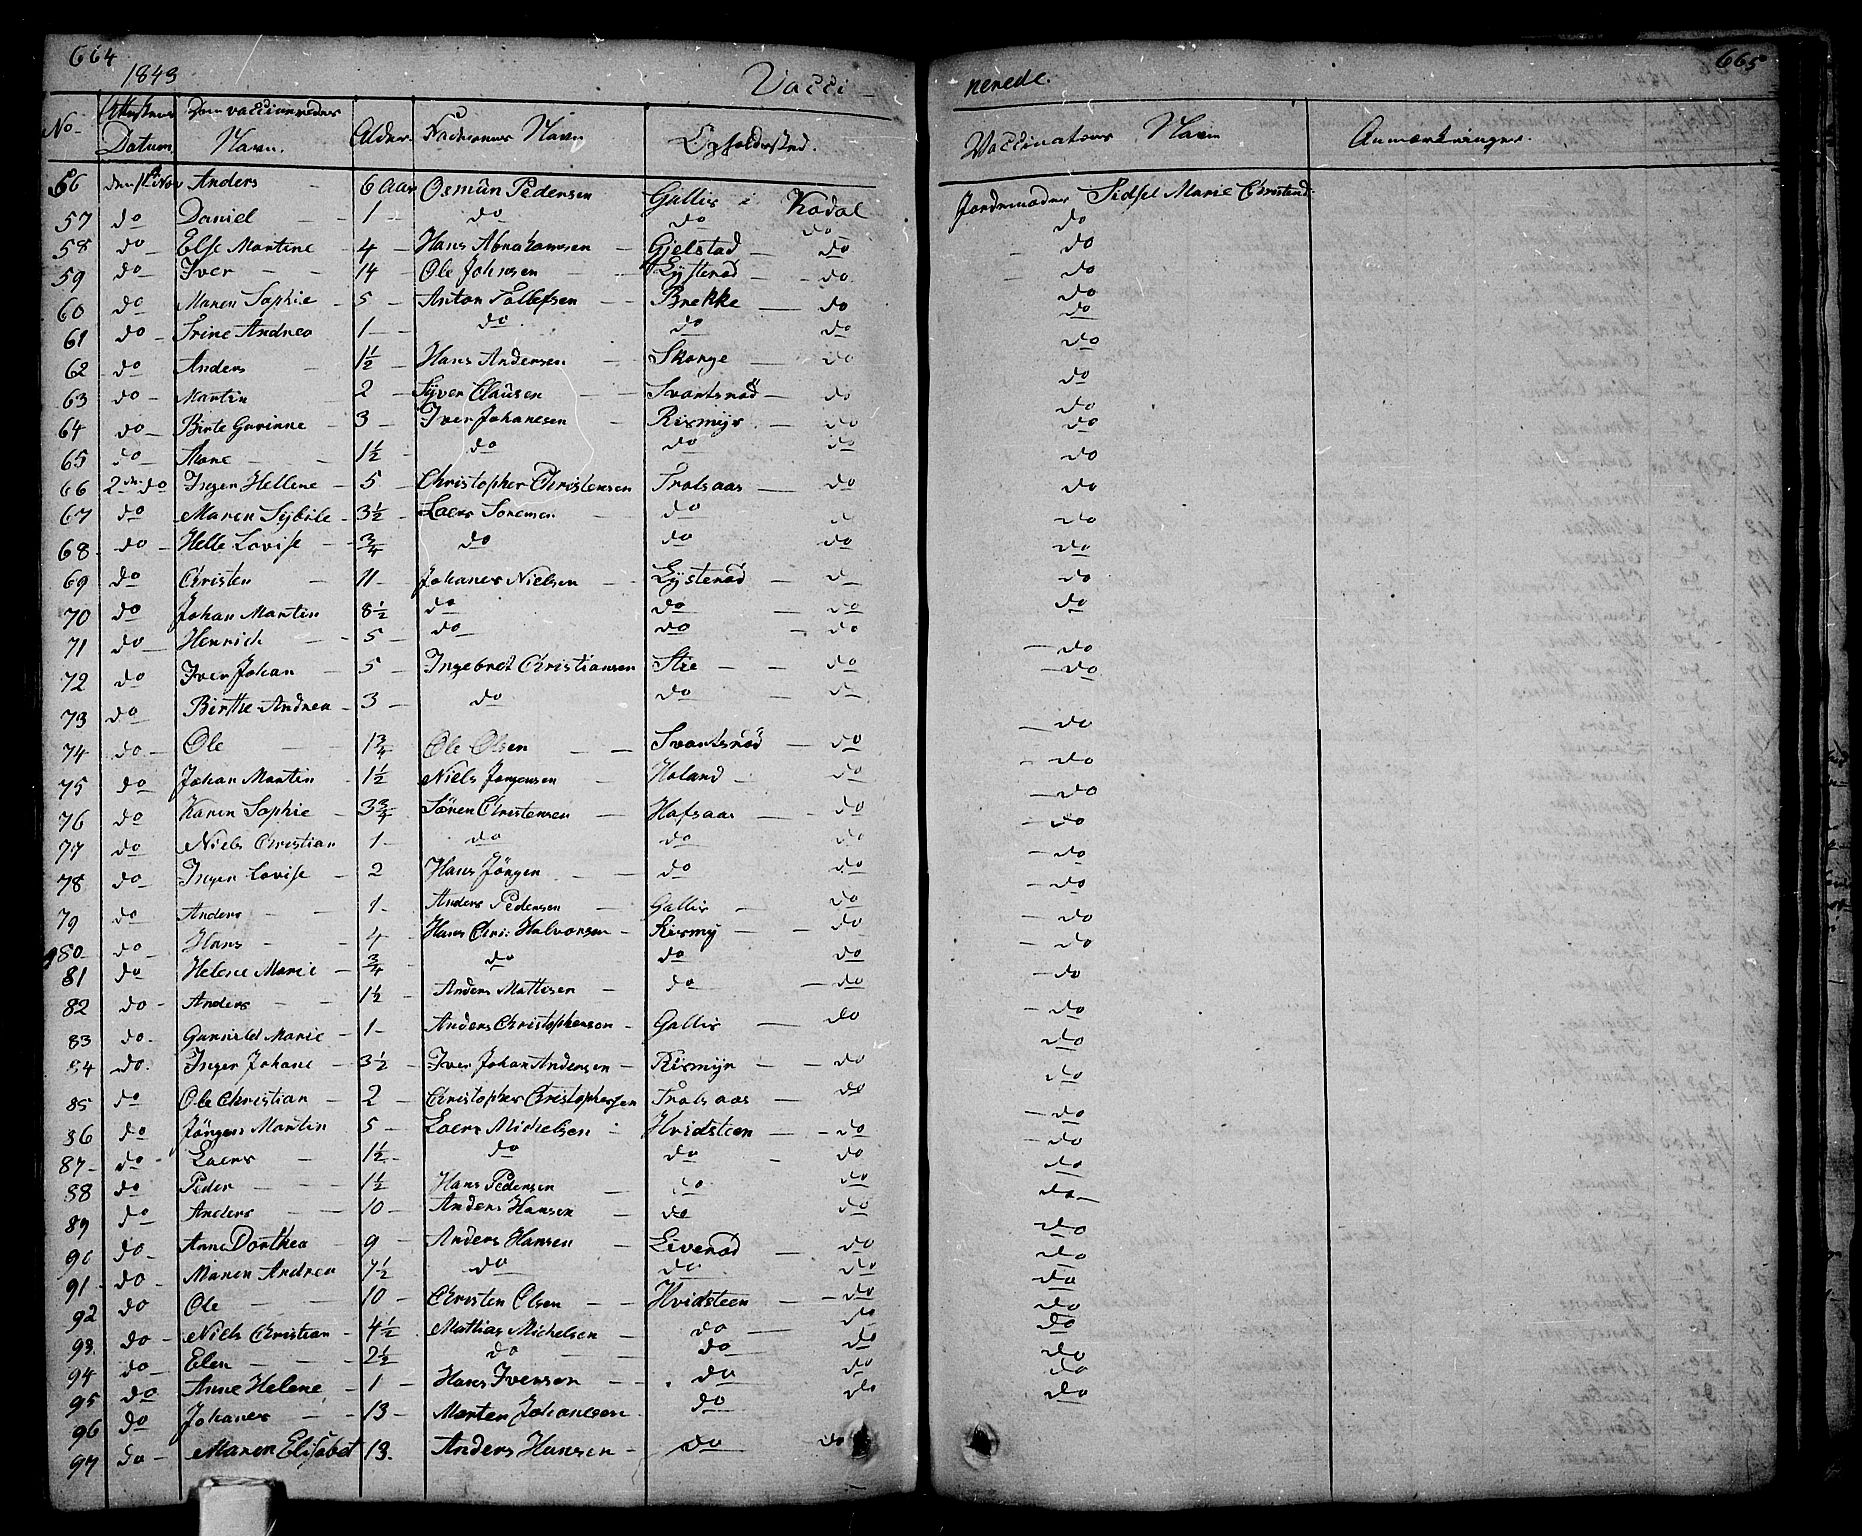 664
1843
Vacci-
nerede.
665
No
Datum
Den vaccineredes Navn.
Alder
Faderens Navn
Opholdssted.
Vaccinators Navn
Anmærkninger.
56 Anders - 6 Aar Osmûn Pedersen Gallis i Kodal Jordemoder Sidsel Marie
57 do Daniel - 1 - do do do do
58 do Else Martine - 4 - Hans Abrahamsen - Gjelstad - do do
59 do Iver - - 14 Ole Johnsen - Lysterød - do do
60 do Maren Sophie - 5 - Anton Tollefsen - Brekke - do do
61 do - Trine Andrea 1 - do do do do
62 do Anders - 1½ Hans Andersen - Skorge - do do
63 do - Martin - 2 - Syver Claûsen - Svartsrød - do do
64 do - Birte Gurinne - 3 - Iver Johanesen - Rismyr - do do
65 do - Mone - - 1½ - do do do do
66 2den do Inger Hellene - 5 - Christopher Christensen Trolsaas - do do
67 do Maren Sybile - 3½ - Laers Sorensen - do do do
68 do - Helle Lovise - ¾ do do do do
69 do Christen - 11 - Johanes Nielsen - Lysterød - do do
70 do Johan Martin 8½ do do - do do
71 do - Henrich - 5 - do do - do do
72 do Iver Johan - 5 - Ingebret Christiansen Stie - - do - do
73 do Birthe Andrea - 3 - do do - do - do
74 do - Ole - 1¾ Ole Olsen - - Svartsrød - do - do
75 do Johan Martin - 1½ Niels Jørgensen - Holand - do - do
76 do Karen Sophie - 3¾ Sören Christensen - Hafsaas - do - do
77 do Niels Christian 1 - do do do - do
78 do - Inger Lovise - 2 Hans Jörgen - do - do - do
79 do Anders - - 1 - Anders Pedersen - Gallis - do - do
80 do - Hans - - 4 - Hans Chri: Halvorsen - Rismy - do - do
81 do Helene Marie - ¾ do do do - do
82 do - Anders - - 1½ Anders Mattisen - do - do - do
83 do - Gunnild Marie - 1 - Anders Christophersen - Gallis - do do
84 do. Inger Johane - 3½ - Iver Johan Andersen - Rismyr - do do
85 do Ole Christian - 2 - Christopher Christophersen Trolsaas - do - do
86 do Jörgen Martin 5 - Laers Michelsen - Hvidsteen - do - do
87 - do - Laers - 1½ - do do - do do
88 do Peder - - 1½ Hans Pedersen - do do do -
89 do Anders - - 10 - Anders Hansen - do do do
90 do - Anne Dorthea - 9 - Anders Hansen - Liverød - do do
91 - do - Maren Andrea 7½ do do do do
92 do Ole - - 10 - Christen Olsen - - Hvidsteen - do do
93. do - Niels Christian - 4½ - Mathias Michelsen - do - do do
94 do - Elen - - 2½ do do do do
95 do Anne Helene - 1 - Hans Iversen - do do do
96 do Johanes - 13 - Morten Johanesen do do do
97 do - Maren Elisabet 13. Anders Hansen - do do